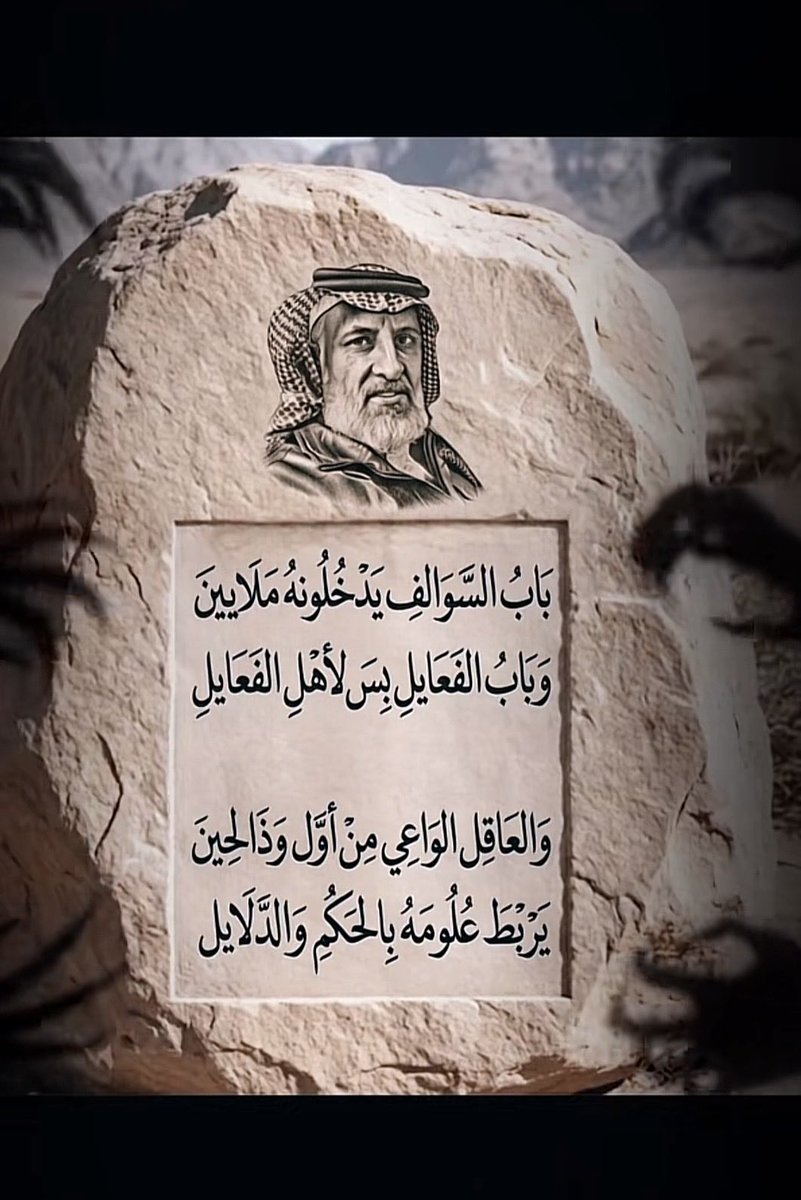 بَابُ السَّوَالفِ يَدْخُلُونهُ مَلَايينَ
وَبَابُ الفَعَايلِ بِسَ لأهْلِ الفَعَايلِ
وَالعَاقِل الوَاعِي مِنْ أوَّل وَذَالحِينَ
يَرْبْطَ عُلُومَهُ بِالحَكُمِ وَالدَّلَايل